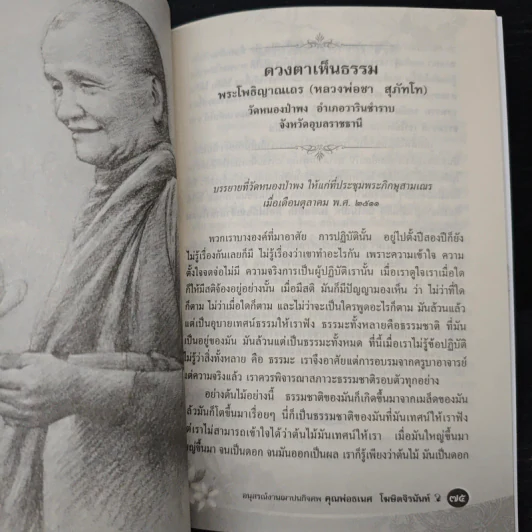 ดวงตาเห็นธรรม
พระโพธิญาณเถร (หลวงพ่อชา สุภัทโท)
วัดหนองป่าพง อำเภอวารินชำราบ
จังหวัดอุบลราชธานี
บรรยายที่วัดหนองป่าพง ให้แก่ที่ประชุมพระภิกษุสามเณร
เมื่อเดือนตุลาคม พ.ศ. ๒๕๑๑
พวกเราบางองค์ที่มาอาศัย การปฏิบัตินั้น อยู่ไปตั้งปีสองปีก็ยัง
ไม่รู้เรื่องกันเลยก็มี ไม่รู้เรื่องว่าเขาทำอะไรกัน เพราะความเข้าใจ ความ
ตั้งใจจดจ่อไม่มี ความจริงการเป็นผู้ปฏิบัติเรานั้น เมื่อเราดูใจเราเมื่อใด
ก็ให้มีสติจ้องอยู่อย่างนั้น เมื่อมีสติ มันก็มีปัญญามองเห็น ว่า ไม่ว่าที่ใด
ก็ตาม ไม่ว่าเมื่อใดก็ตาม และไม่ว่าจะเป็นใครพูดอะไรก็ตาม มันล้วนแล้ว
แต่เป็นอุบายเทศน์ธรรมให้เราฟัง ธรรมะทั้งหลายคือธรรมชาติ ที่มัน
เป็นอยู่ของมัน มันล้วนแต่เป็นธรรมะทั้งหมด ทีนี้เมื่อเราไม่รู้ข้อปฏิบัติ
ไม่รู้ว่าสิ่งทั้งหลาย คือ ธรรมะ เราจึงอาศัยแต่การอบรมจากครูบาอาจารย์
แต่ความจริงแล้ว เราควรพิจารณาสภาวะธรรมชาติรอบตัวทุกอย่าง
อย่างต้นไม้อย่างนี้ ธรรมชาติของมันก็เกิดขึ้นมาจากเมล็ดของมัน
แล้วมันก็โตขึ้นมาเรื่อยๆ นี่ก็เป็นธรรมชาติของมันที่มันเทศน์ให้เราฟัง
แต่เราไม่สามารถเข้าใจได้ว่าต้นไม้มันเทศน์ให้เรา เมื่อมันใหญ่ขึ้นมา
ใหญ่ขึ้นมา จนเป็นดอก จนมันออกเป็นผล เราก็รู้เพียงว่าต้นไม้ มันเป็นดอก
อนุสรณ์งานฌาปนกิจศพ คุณพ่อธเนศ โฆษิตจิรนันท์ ๗๕